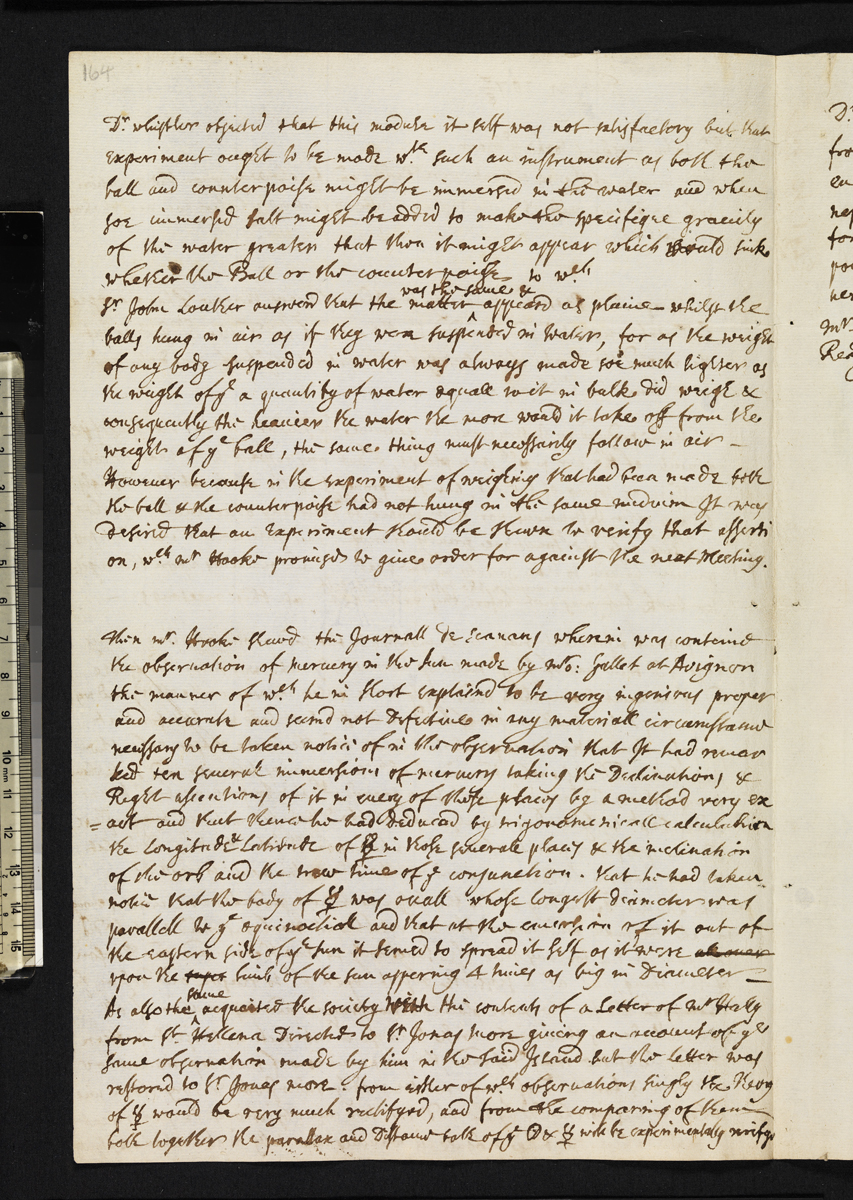 164
Dr. whistler objected that this module it self was not satisfactory but that
experiment ought to be made wth. such an instrument as both the
ball and counterpoise might be immersed in the water and when
soe immersed salt might be added to make the specifique gravity
of the water greater that then it might appear which would sink
whether the Ball or the counterpoise to wch
Sr John Louther answerd that the matter was the same & appeard as plaine whilst the
balls hung in air as if they were suspended in water, for as the weight
of any body suspended in water was always made soe much lighter as
the weight of ye a quantity of water equall to it in bulk did weigh &
consequently the heavier the water the more would it take off from the
weight of ye ball, the same thing must necessarily follow in air –
However because in the experiment of weighing that had been made both
the ball & the counterpoise had not hung in the same medium It was
desired that an experiment should be shewn to verify that asserti
on, wch mr Hooke promised to give order for against the next Meeting.
Then mr. Hooke shewd the Journall De scavans wherein was containd
the observation of mercury in the sun made by mr: Gallet at Avignon
the manner of wch he in short explaind to be very ingenious proper
and accurate and seemd not defective in any materiall circumstance
necessary to be taken notice of in the observation that It had remar
ked ten severall immersions of mercury taking the Declinations &
Right assentions of it in every of those places by a method very ex
= act and that thence he had deduced by trigonometricall calculation
the Longitude & Latitude of ☿ in those severall places & the inclination
of the orb and the true time of ye conjunction. that he had taken
notice that the body of ☿ was ovall whose longest diameter was
parallell to ye equinoctiall and that at the emersion of it out of
the eastern side of ye sun it semed to spread it self as it were
upon the limb of the sun appering 4 times as big in Diameter –
As also the same acquainted the society with the contents of a Letter of mr Hally
from St. Hellena Directed to Sr Jonas more giving an account of ye
same observation made by him in the said Island but the Letter was
restored to Sr. Jonas more. from either of wch observations singly the theory
of ☿ would be very much rectifyed, and from the comparing of them
both together the parallax and Distance both of ye ☉ & ☿ will be experimentally verifyd
Dr
fro
en
nep
for
pou
her
mr
Rea